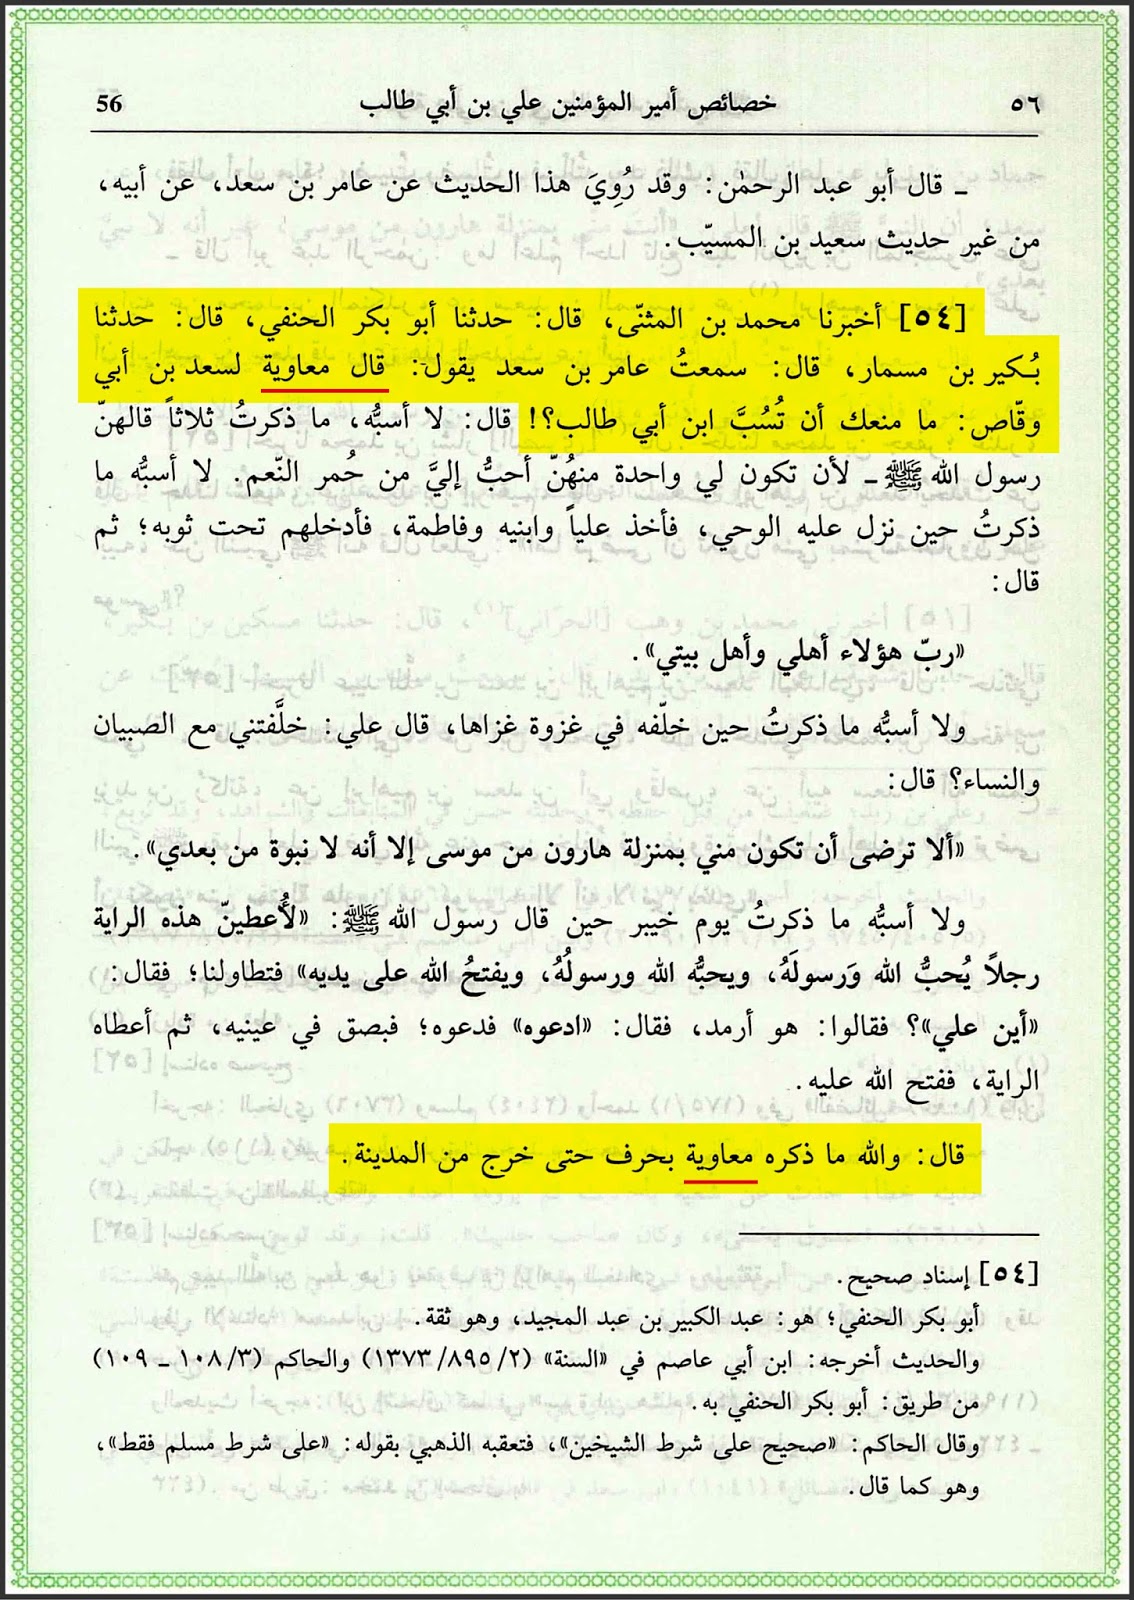 ٥٦ خصائص أمير المؤمنين علي بن أبي طالب 56
ـ قال أبو عبد الرحمٰن: وقد رُوِيَ هذا الحديث عن عامر بن سعد، عن أبيه،
من غير حديث سعيد بن المسيّب.
[٥٤] أخبرنا محمد بن المثنّى، قال: حدثنا أبو بكر الحنفي، قال: حدثنا
بُكير بن مسمار، قال: سمعتُ عامر بن سعد يقول: قال معاوية لسعد بن أبي
وقّاص: ما منعك أن تُسُبَّ ابن أبي طالب؟! قال: لا أسبُّه، ما ذكرتُ ثلاثاً قالهنّ
رسول الله ﷺ ـ لأن تكون لي واحدة منهُنّ أحبُّ إليَّ من حُمر النّعم. لا أسبُّه ما
ذكرتُ حين نزل عليه الوحي، فأخذ علياً وابنيه وفاطمة، فأدخلهم تحت ثوبه؛ ثم
قال:
«ربّ هؤلاء أهلي وأهل بيتي».
ولا أسبُّه ما ذكرتُ حين خلّفه في غزوة غزاها، قال علي: خلَّفتني مع الصبيان
والنساء؟ قال:
«ألا ترضى أن تكون مني بمنزلة هارون من موسى إلا أنه لا نبوة من بعدي».
ولا أسبُّه ما ذكرتُ يوم خيبر حين قال رسول الله ﷺ: «لأُعطينّ هذه الراية
رجلاً يُحبُّ الله وَرسولَهُ، ويحبُّه الله ورسولُهُ، ويفتحُ الله على يديه» فتطاولنا؛ فقال:
«أين علي»؟ فقالوا: هو أرمد، فقال: «ادعوه» فدعوه؛ فبصق في عينيه، ثم أعطاه
الراية، ففتح الله عليه.
قال: والله ما ذكره معاوية بحرف حتى خرج من المدينة.
[٥٤] إسناد صحيح.
أبو بكر الحنفي؛ هو: عبد الكبير بن عبد المجيد، وهو ثقة.
والحديث أخرجه: ابن أبي عاصم في «السنة» (١٣٧٣/٨٩٥/٢) والحاكم (١٠٨/٣ ـ ١٠٩)
من طريق: أبو بكر الحنفي به.
وقال الحاكم: «صحيح على شرط الشيخين»، فتعقبه الذهبي بقوله: «على شرط مسلم فقط»،
وهو كما قال.